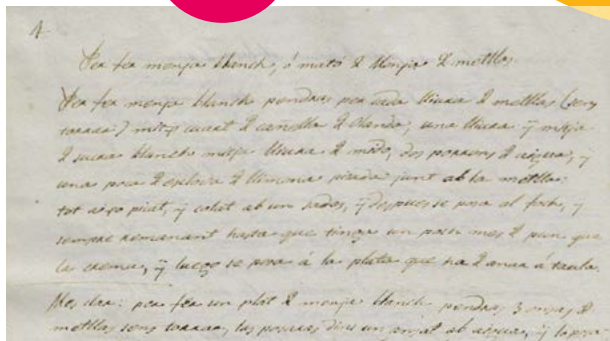 1.
Per fer menja blanch, ó mató de Monja de metllas.
Per fer menja blanch pendras per cada lliura de metllas (sens
torrar) mitg cuart de canella de Olanda, una lliura y mitja
de sucre blanch mitja lliura de midó, dos porrons de aigua, y
una poca de esclova de llimona picada junt ab la metlla:
tot aixo picat, y colat ab un sedas, y despues se posa al foch, y
sempre remanant hasta que tinga un poch mes de punt que
la crema, y luego se posa á la plata que ha de anar á taula.
Mes clar: per fer un plat de menja blanch pendras 3 onsas de
metllas sens torrar, las posaras dins un ansat ab aigua, y